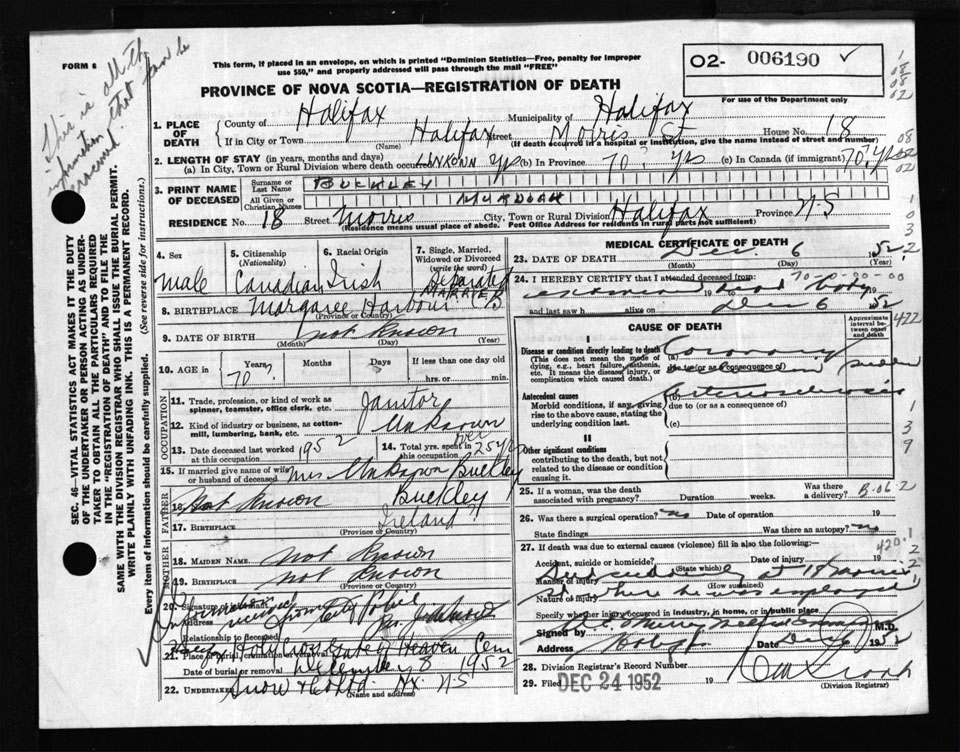 FORM 6
This is all the information that can be procured.
This form, if placed in an envelope, on which is printed "Dominion Statistics—Free, penalty for improper
use $50," and properly addressed will pass through the mail "FREE"
O2- 006190 ✓
For use of the Department only
PROVINCE OF NOVA SCOTIA—REGISTRATION OF DEATH
1. PLACE OF DEATH
County of Halifax Municipality of Halifax
If in City or Town Halifax Street Morris St House No. 18
(Name) (If death occurred in a hospital or institution, give the name instead of street and number)
2. LENGTH OF STAY (in years, months and days)
(a) In City, Town or Rural Division where death occurred UNKOWN yrs (b) In Province 70 yrs (c) In Canada (if immigrant) 70 yrs
3. PRINT NAME OF DECEASED
Surname or Last Name BUCKLEY
All Given or Christian Names MURDOAH
RESIDENCE No. 18 Street Morris City, Town or Rural Division Halifax Province N-S
(Residence means usual place of abode. Post Office Address for residents in rural parts not sufficient)
4. Sex male
5. Citizenship (Nationality) Canadian
6. Racial Origin Irish
7. Single, Married, Widowed or Divorced (write the word) Separated
8. BIRTHPLACE Margaree Harbour CB
(Province or Country)
9. DATE OF BIRTH not known
(Month) (Day) (Year)
10. AGE in Years Months Days If less than one day old
70 hrs. or min.
OCCUPATION
11. Trade, profession, or kind of work as spinner, teamster, office clerk. etc. Janitor
12. Kind of industry or business, as cotton-mill, lumbering, bank, etc. Unknown
13. Date deceased last worked at this occupation 1952
14. Total yrs. spent in this occupation over 25 yrs
15. If married give name of wife or husband of deceased Mrs Unknown Buckley
FATHER
16. Not known Buckley
17. BIRTHPLACE Ireland
(Province or Country)
MOTHER
18. MAIDEN NAME not known
19. BIRTHPLACE not known
(Province or Country)
20. Signature of informant
Information received from City Police
Address
Relationship to deceased
21. Place of burial, cremation or removal Holy Cross Gate of Heaven Cem
Date of burial or removal December 8 1952
22. UNDERTAKER Snow & Co Ltd. Hx. N-S
(Name and address)
MEDICAL CERTIFICATE OF DEATH
23. DATE OF DEATH Dec. 6 1952
(Month) (Day) (Year)
24. I HEREBY CERTIFY that I attended deceased from: 70-0-30-00
examined 19 dead body
and last saw h alive on Dec 6 1952
CAUSE OF DEATH
Approximate interval between onset and death
I
Disease or condition directly leading to death
(This does not mean the mode of dying, e.g., heart failure, asthenia, etc. It means the disease, injury, or complication which caused death.)
(a) Coronary
due to (or as a consequence of)
Antecedent causes
Morbid conditions, if any, giving rise to the above cause, stating the underlying condition last.
(b) Arteriosclerosis
due to (or as a consequence of)
(c)
II
Other significant conditions
contributing to the death, but not related to the disease or condition causing it.
25. If a woman, was the death associated with pregnancy? Duration weeks. Was there a delivery?
26. Was there a surgical operation? no Date of operation 19
State findings Was there an autopsy? no
27. If death was due to external causes (violence) fill in also the following:
Accident, suicide or homicide? Date of injury 19
(State which)
Manner of injury Died suddenly at 18 Morris
(How sustained)
Nature of injury St where he was employed
Specify whether injury occurred in industry, in home, or in public place
Signed by M.D.
Address Dec 1952
28. Division Registrar's Record Number
29. Filed DEC 24 1952 19
(Division Registrar)
SEC. 46—VITAL STATISTICS ACT MAKES IT THE DUTY
OF THE UNDERTAKER OR PERSON ACTING AS UNDER-
TAKER TO OBTAIN ALL THE PARTICULARS REQUIRED
IN THE "REGISTRATION OF DEATH" AND TO FILE THE
SAME WITH THE DIVISION REGISTRAR WHO SHALL ISSUE THE BURIAL PERMIT.
WRITE PLAINLY WITH UNFADING INK. THIS IS A PERMANENT RECORD.
Every item of information should be carefully supplied. (See reverse side for instructions.)